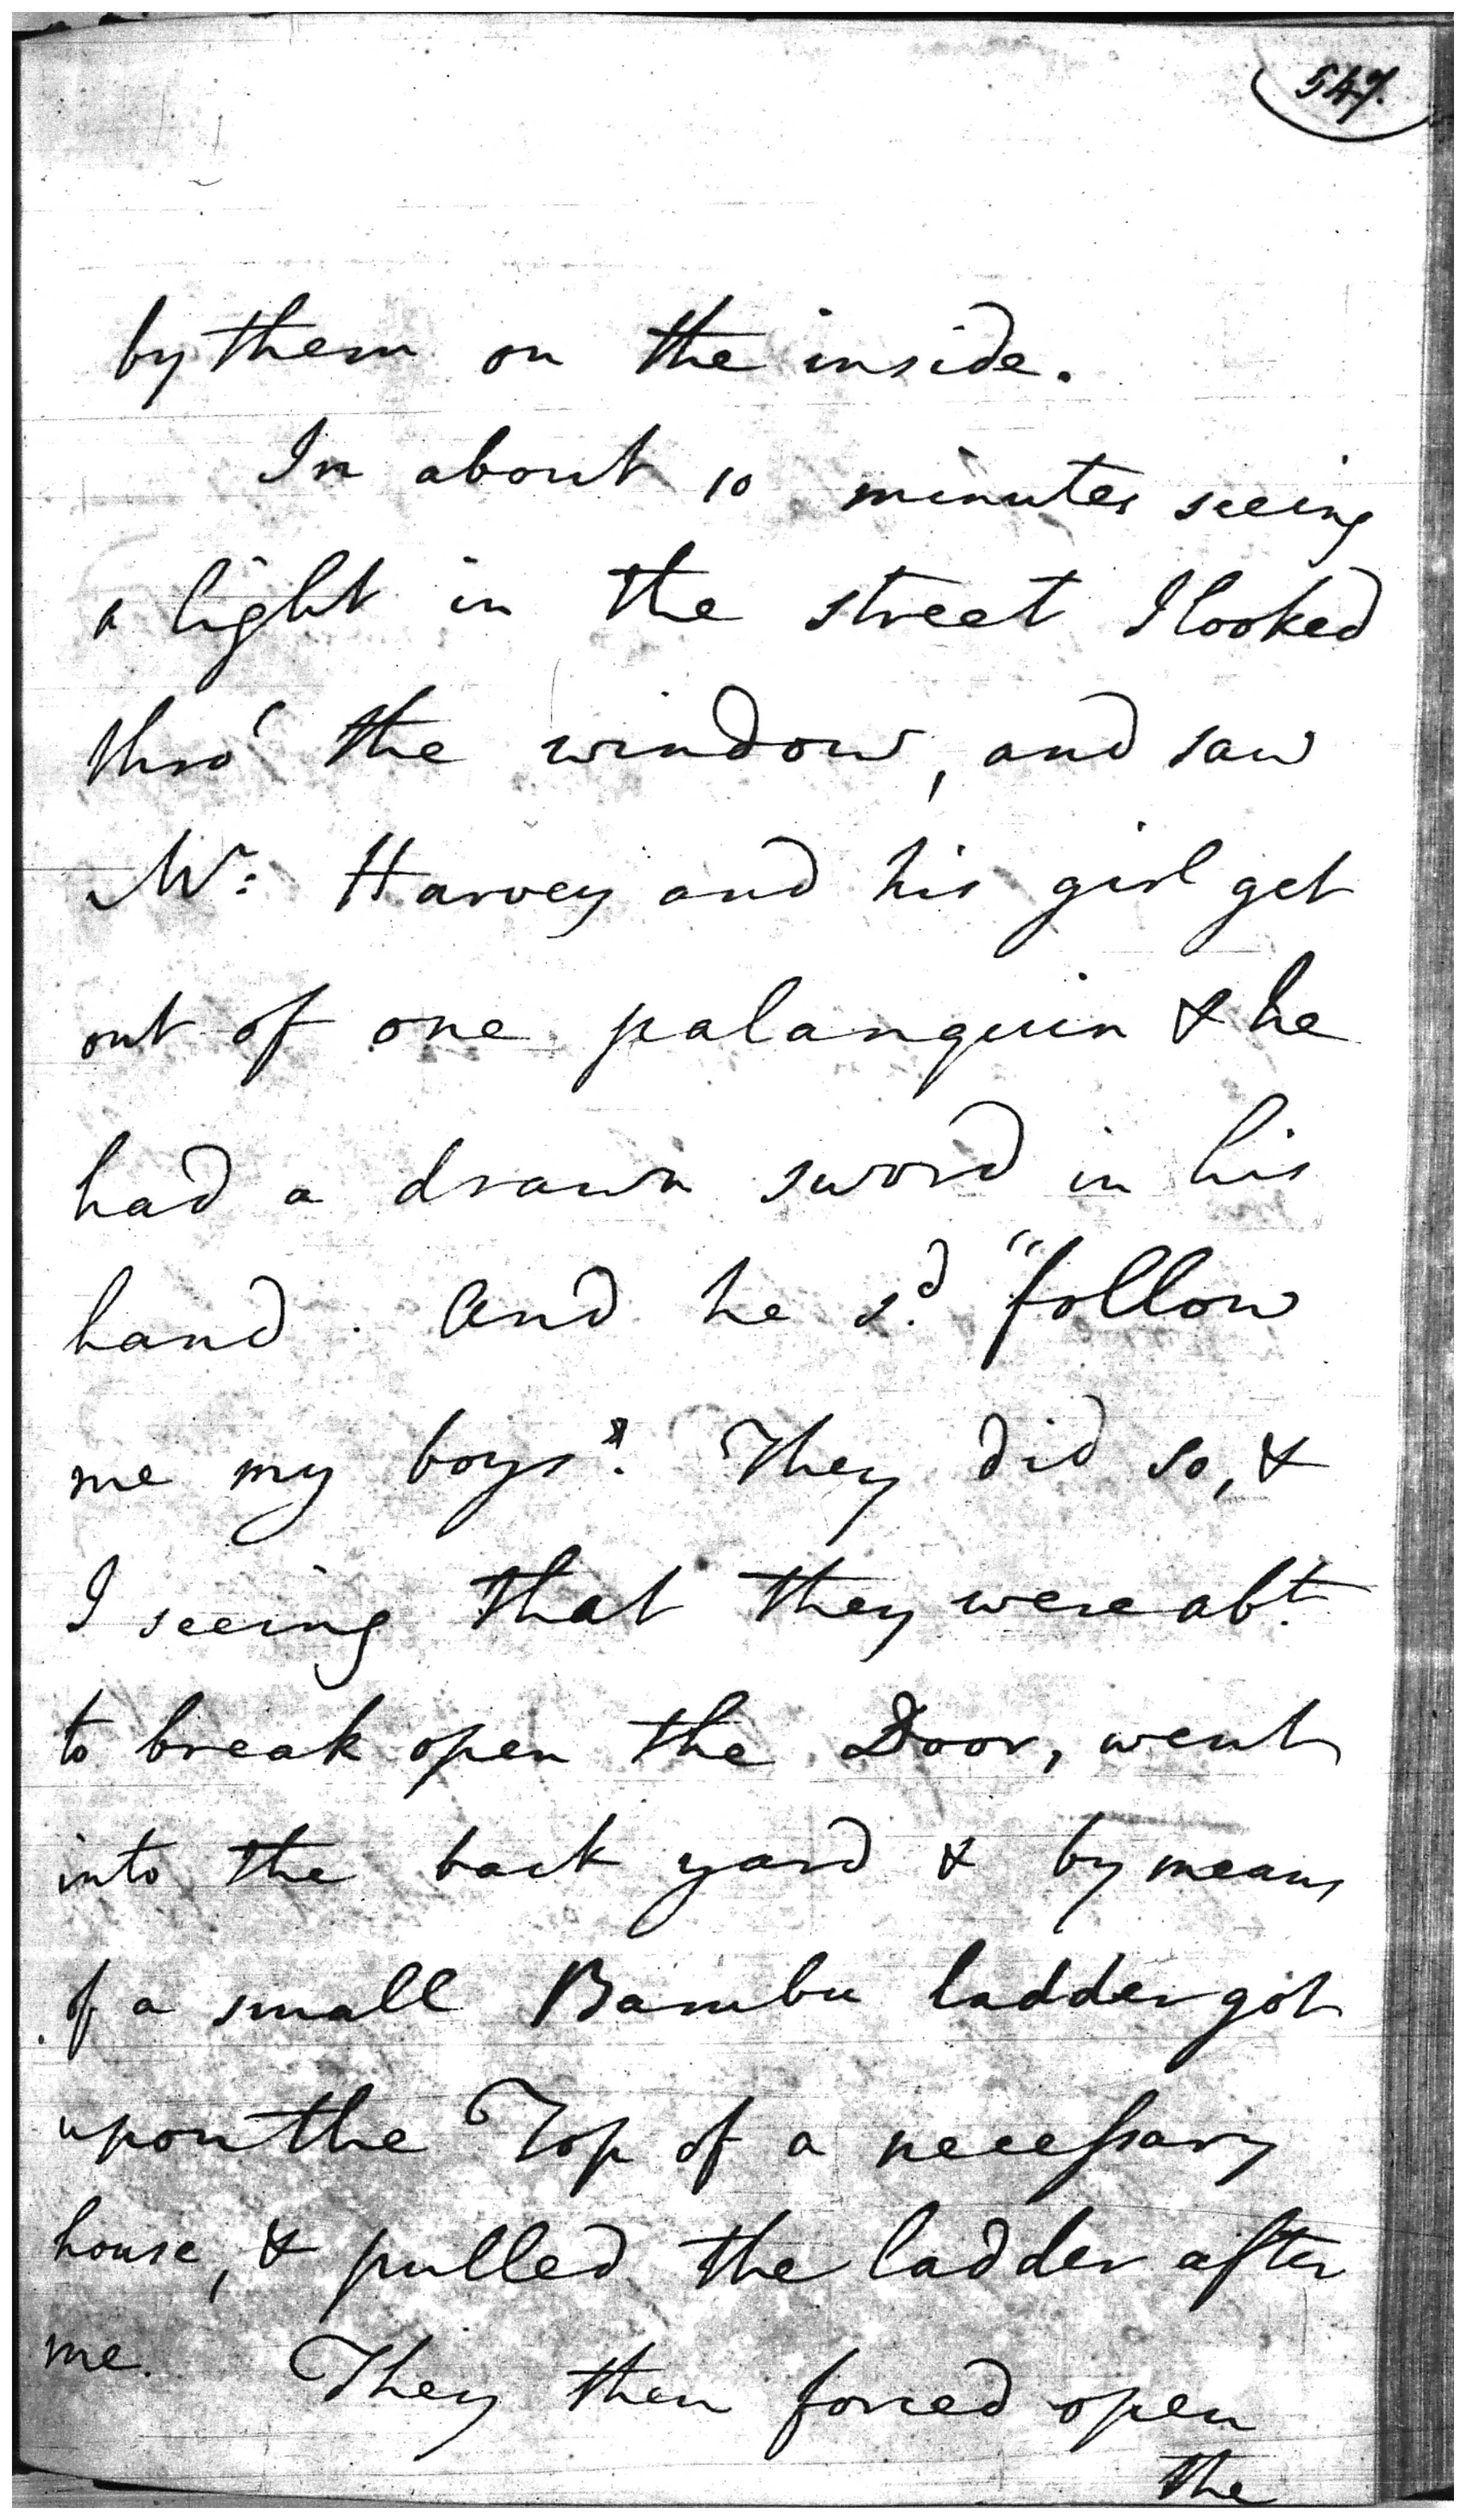 547.
by them on the inside.
In about 10 minutes seeing
a light in the street I looked
thro' the window, and saw
Mr: Harvey and his girl get
out of one palanquin & he
had a drawn sword in his
hand. And he sd. "follow
me my boys". They did so, &
I seeing that they were abt.
to break open the Door, went
into the back yard & by means
of a small Bambu ladder got
upon the Top of a necessary
house, & pulled the ladder after
me. They then forced open
the